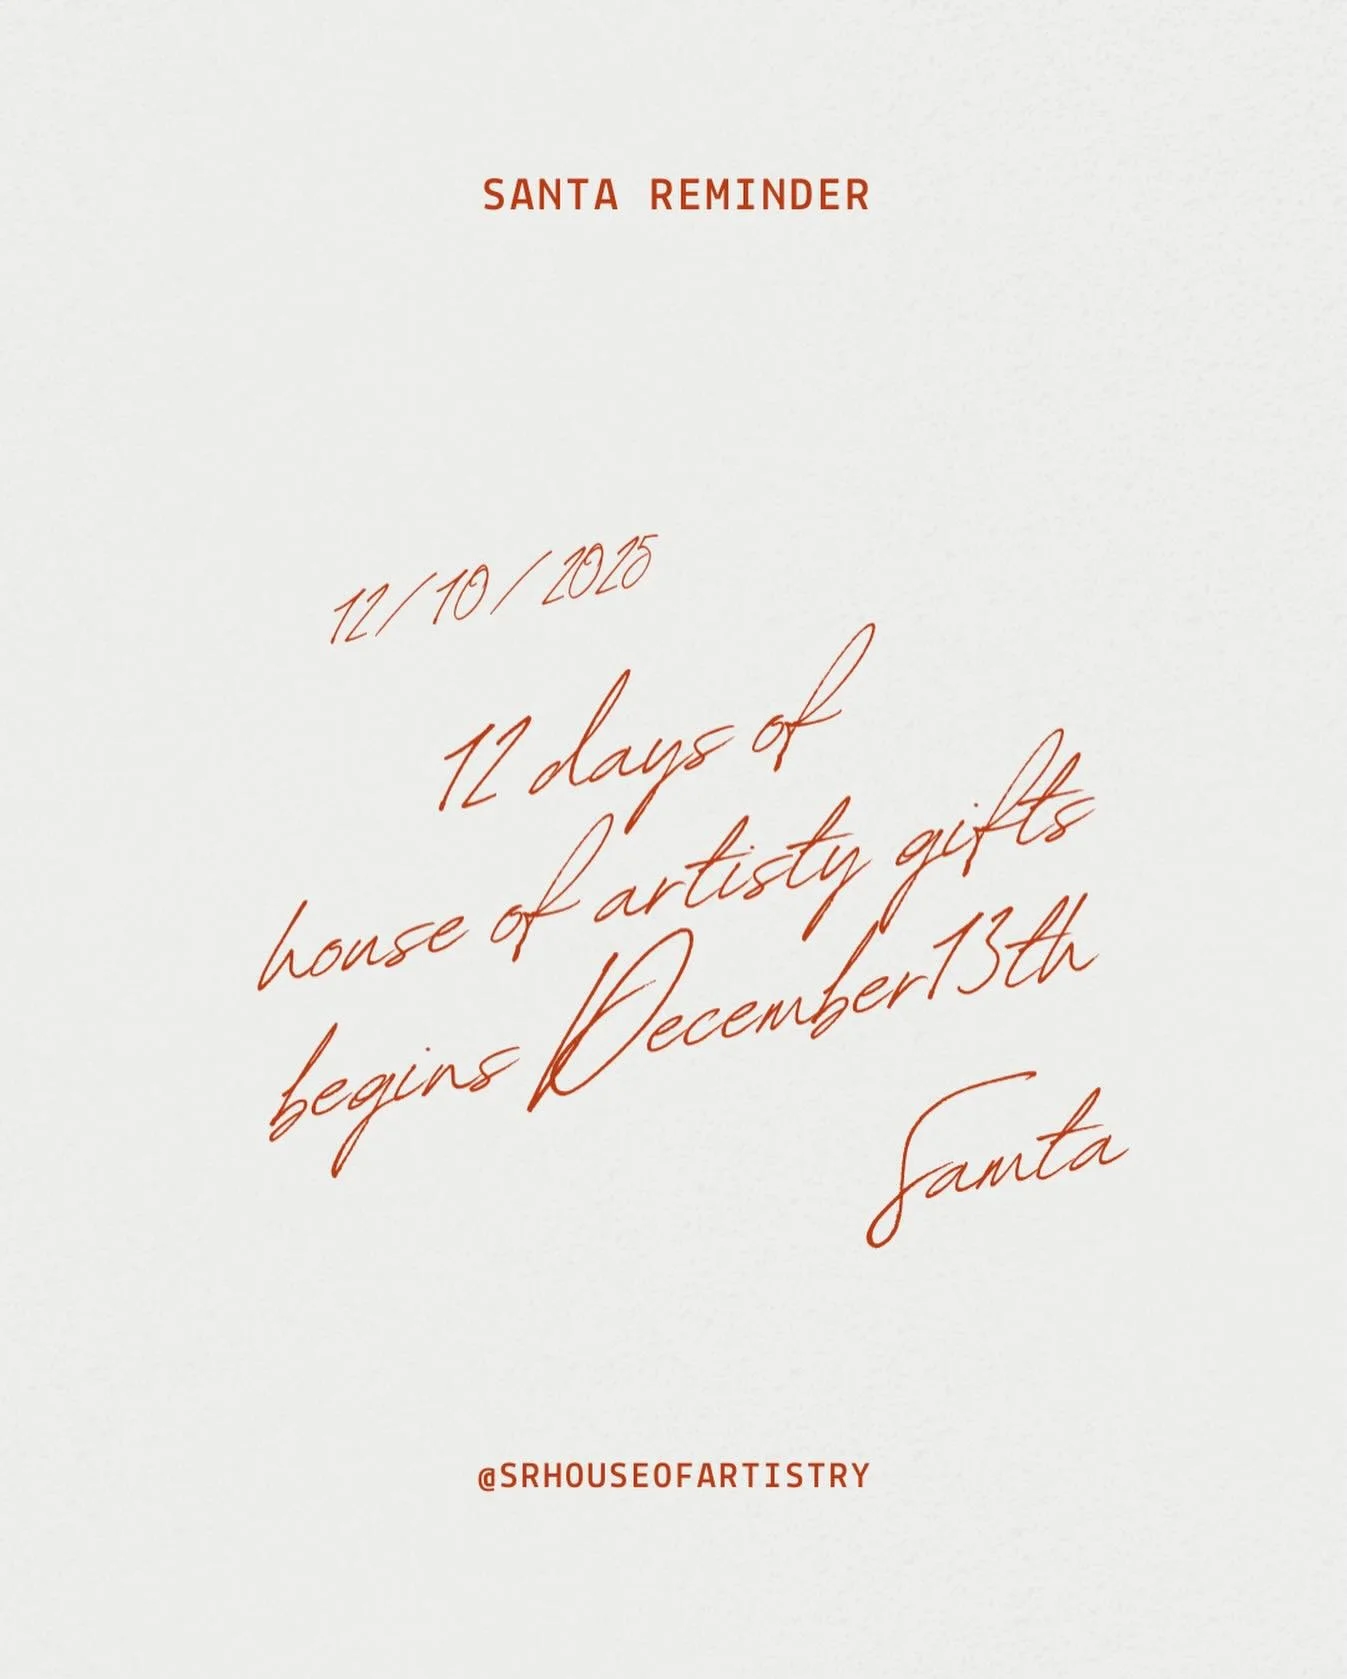 SANTA REMINDER
12/10/2025
12 days of
house of artisty gifts
begins December13th
Santa
@SRHOUSEOFARTISTRY